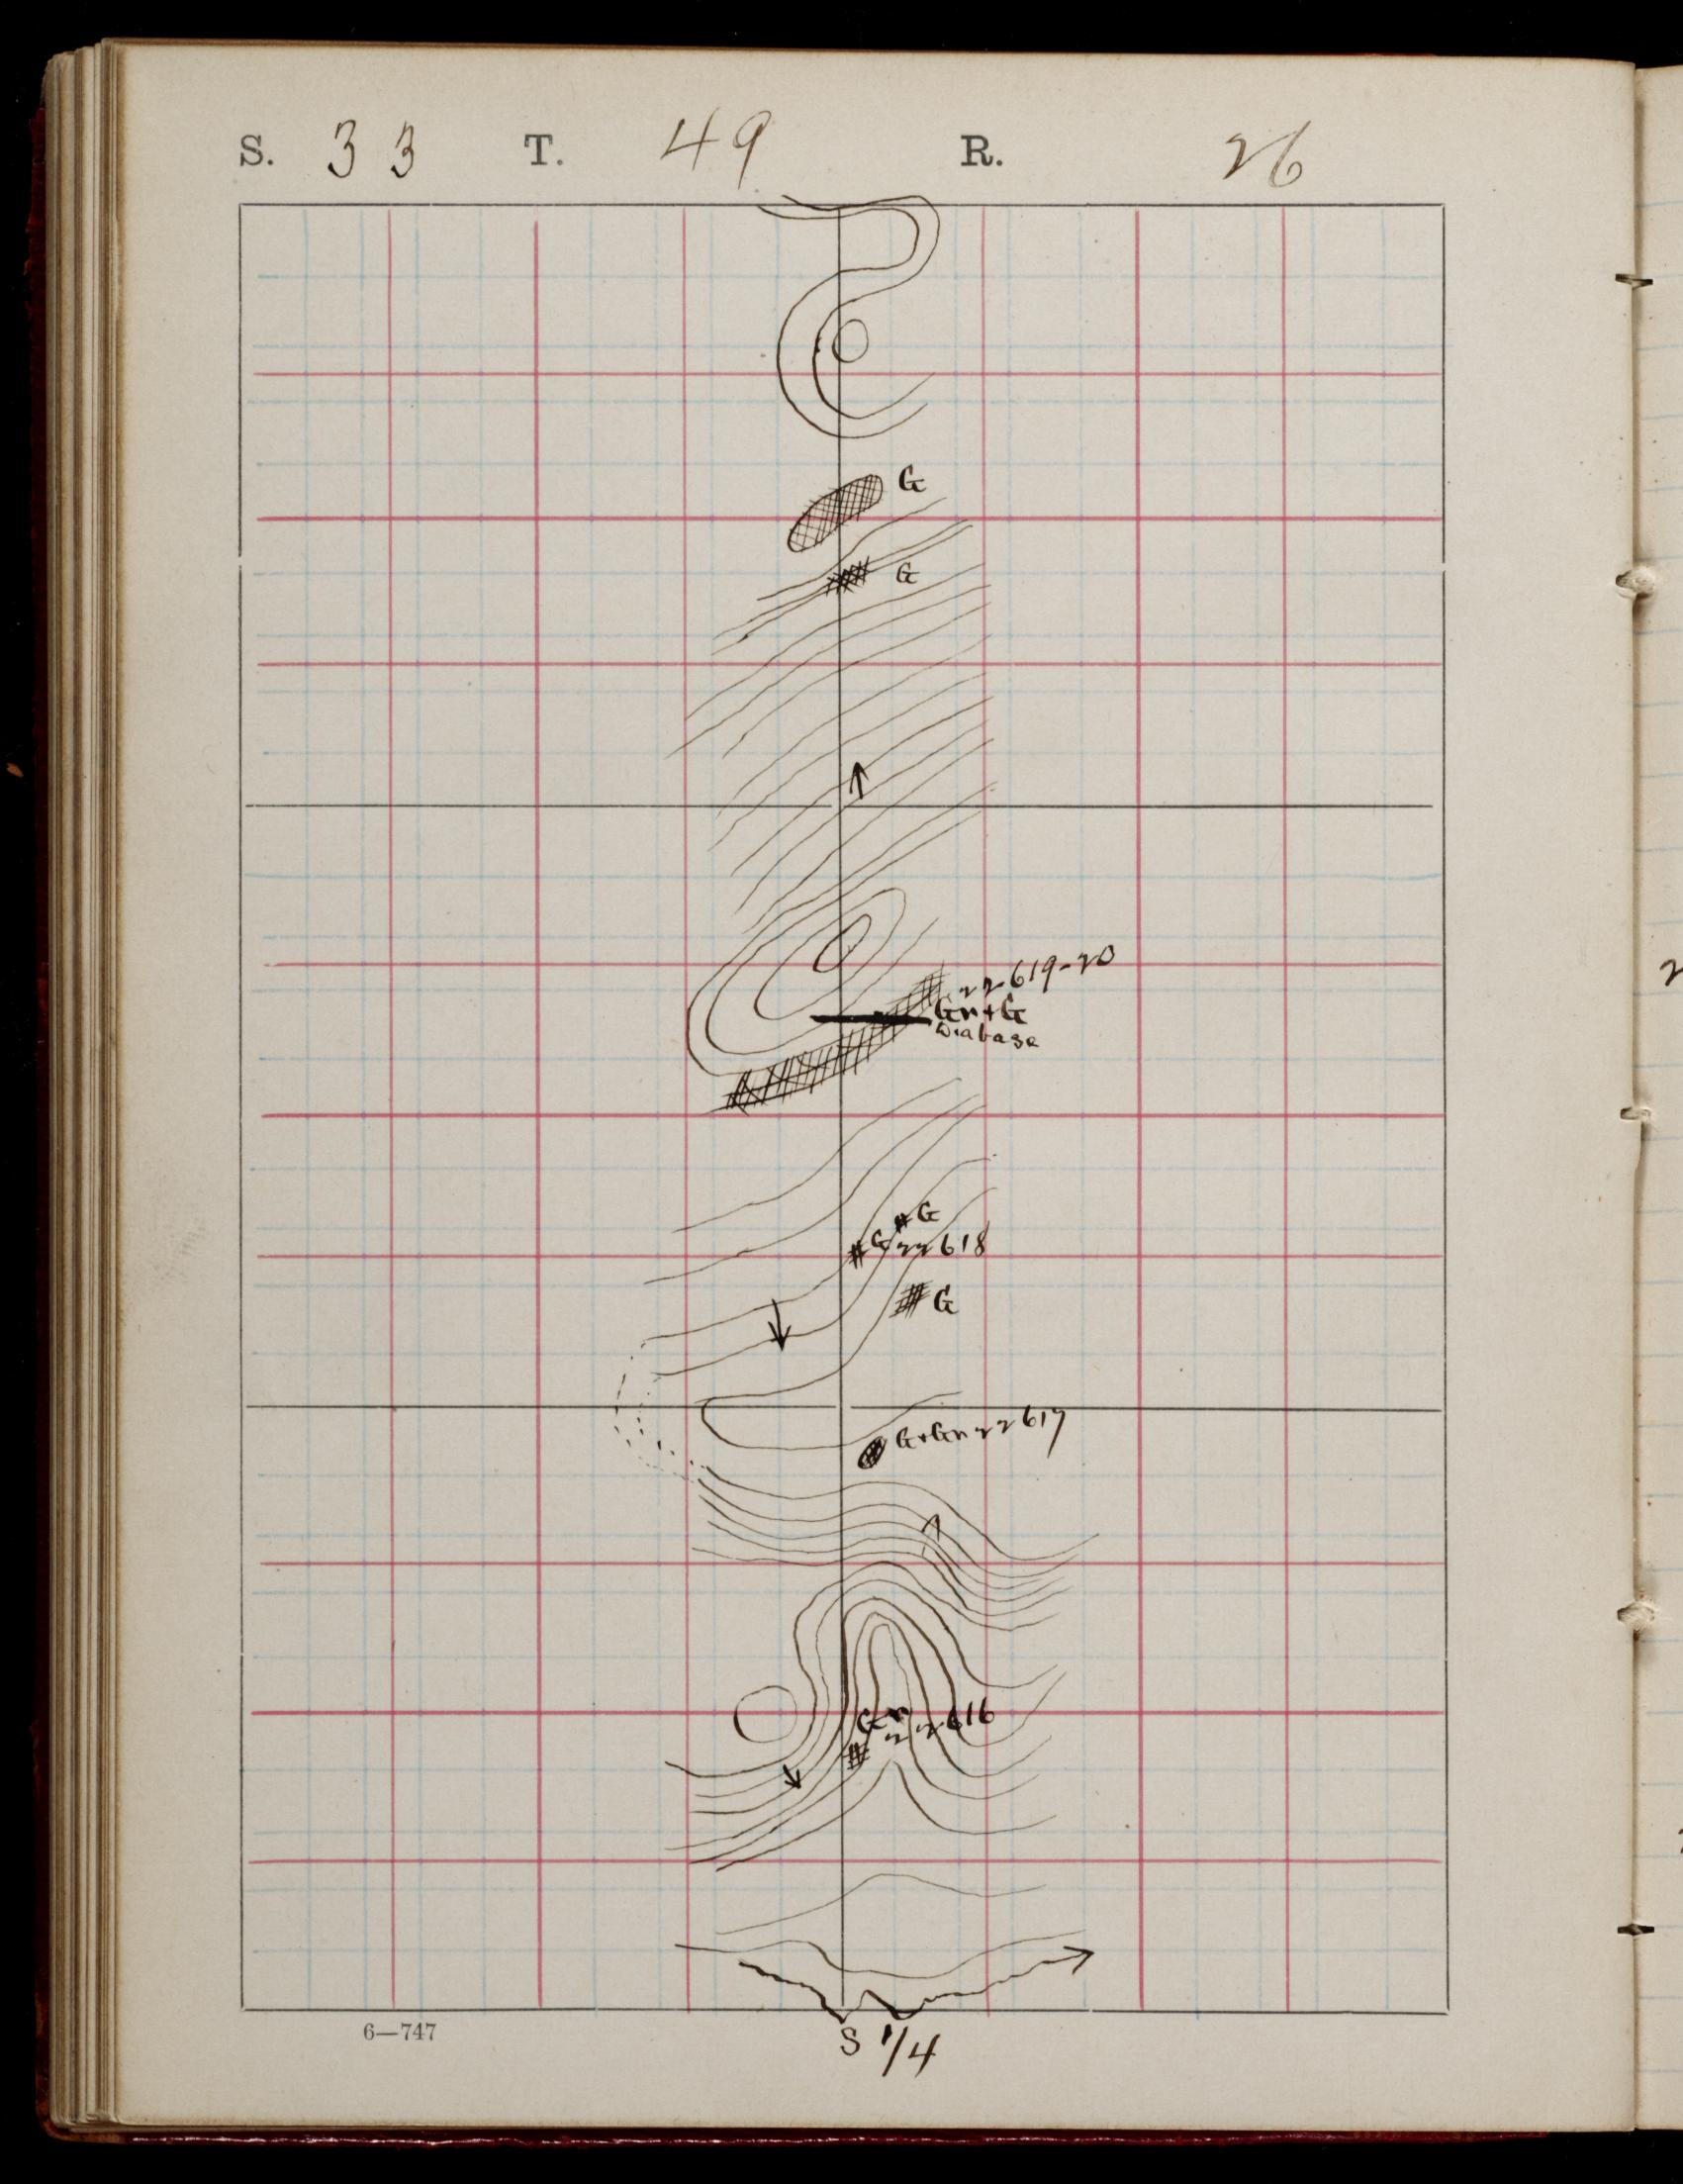 S. 33 T. 49 R. 26
G
G
22619-20
Gn+G
Diabase
G
G 22618
G
G+Gn 22617
Gn
22616
6—747
S 1/4